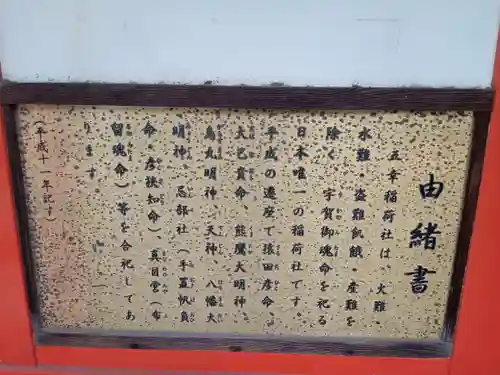 由緒書
五幸稲荷社は、火難、
水難・盗難飢餓・産難を
除く 宇賀御魂命を祀る
日本唯一の稲荷社です。
平成の遷座で猿田彦命、
大己貴命、熊鷹大明神、
鳥丸明神、天神、八幡大
明神、忌部社(手置帆負
命・彦狭知命)真目堂(布
留魂命)等を合祀してあ
ります。
(平成十一年記す)